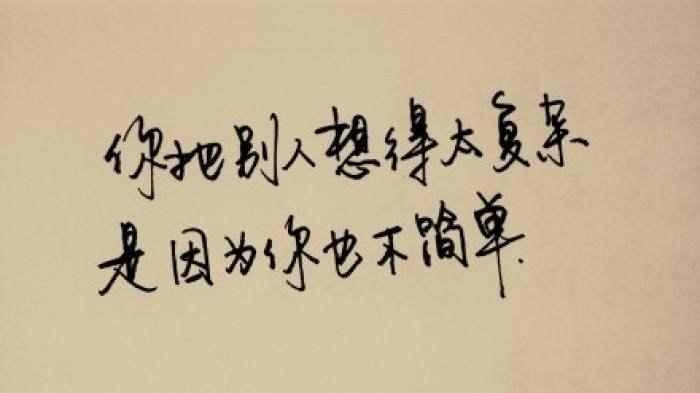 你把别人想得太复杂
是因为你也不简单.